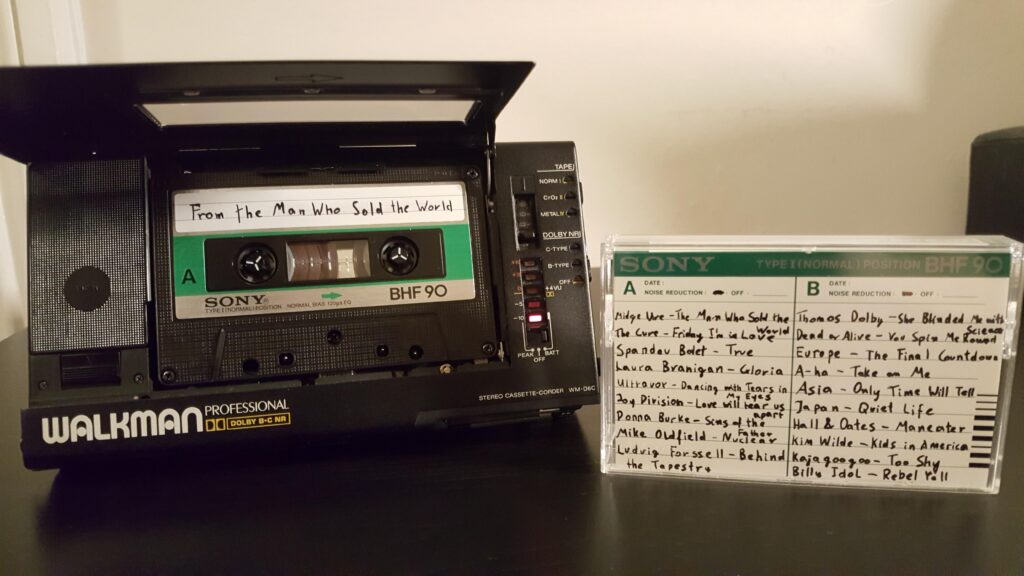 TAPE
NORM I
CrO2 II
METAL IV
DOLBY NR
C-TYPE
B-TYPE
OFF
+4VU
PEAK BATT
OFF
From the Man Who Sold the World
A
SONY
TYPE I (NORMAL) POSITION NORMAL BIAS 120μs EQ
BHF 90
STEREO CASSETTE-CORDER WM-D6C
WALKMAN PROFESSIONAL
DOLBY B-C NR
SONY TYPE I (NORMAL) POSITION BHF 90
A DATE:
NOISE REDUCTION: OFF:
Midge Ure - The Man Who Sold the
World
The Cure - Friday I'm in Love
Spandau Balet - True
Laura Branigan - Gloria
Ultravox - Dancing with Tears in
My Eyes
Joy Division - Love will tear us
apart
Donna Burke - Sins of the
Father
Mike Oldfield - Nuclear
Ludvig Forssell - Behind
the Tapestry
B DATE:
NOISE REDUCTION: OFF:
Thomas Dolby - She Blinded Me with
Science
Dead or Alive - You Spin Me Round
Europe - The Final Countdown
A-ha - Take on Me
Asia - Only Time Will Tell
Japan - Quiet Life
Hall & Oates - Maneater
Kim Wilde - Kids in America
Kajagoogoo - Too Shy
Billy Idol - Rebel Yell